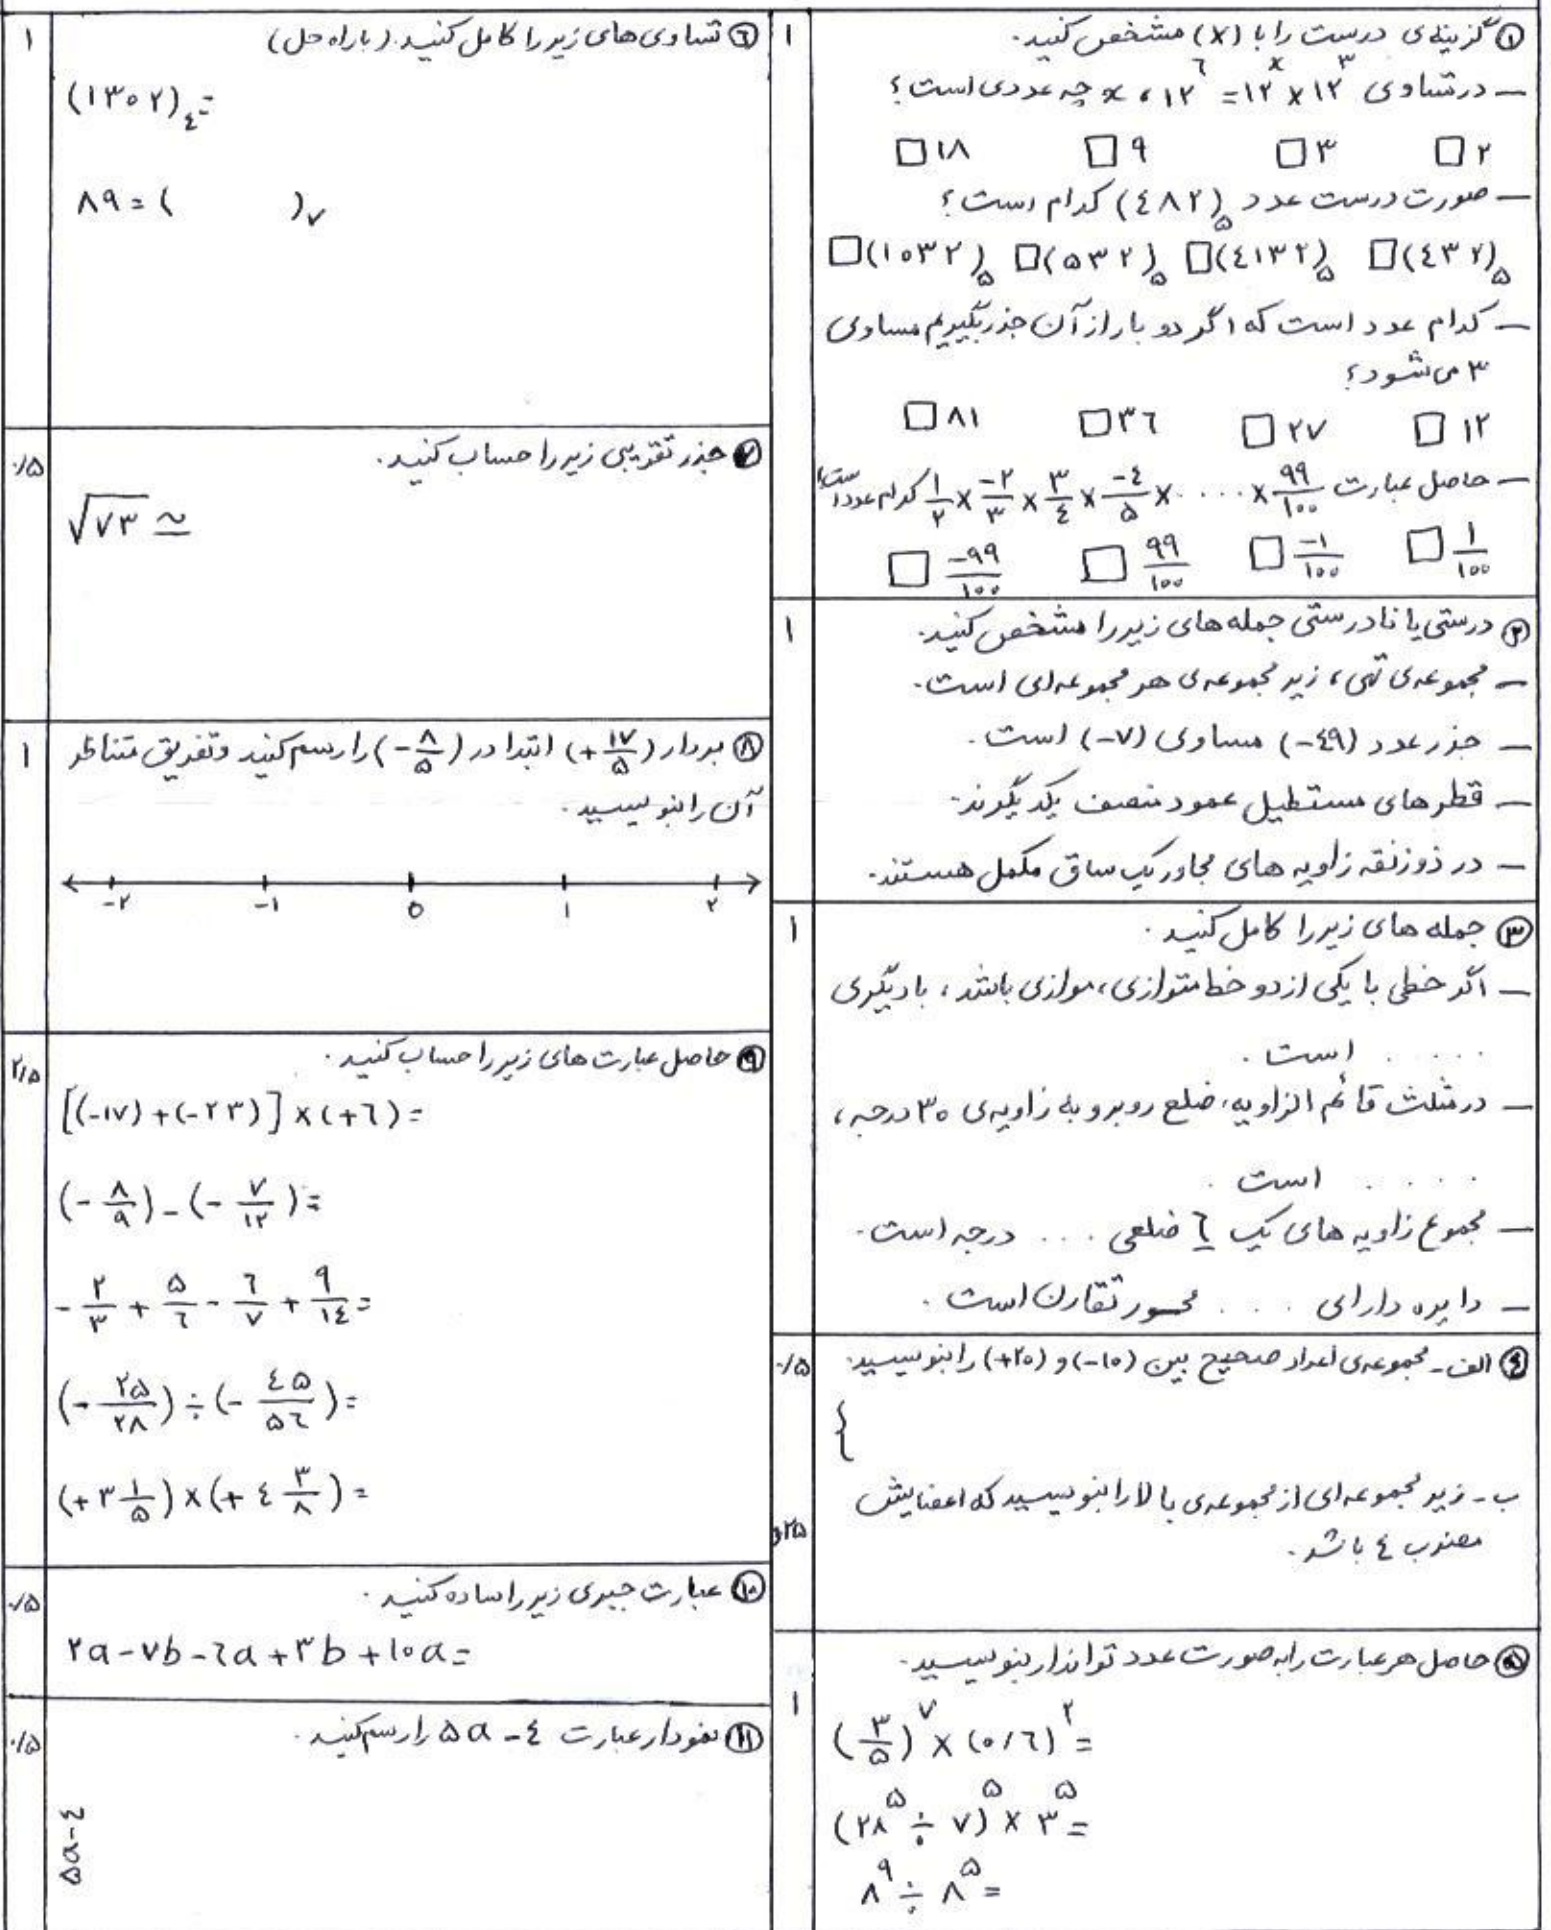 ۱
① گزینه‌ی درست را با (×) مشخص کنید.
– در تساوی ۱۲^۶ = ۱۲^x × ۱۲^۳ ، x چه عددی است؟
۲ □ ۳ □ ۹ □ ۱۸ □
– صورت درست عدد (۴۸۲)₅ کدام است؟
(۴۳۲)₅ □ (۴۱۳۲)₅ □ (۵۳۲)₅ □ (۱۰۳۲)₅ □
– کدام عدد است که اگر دو بار از آن جذر بگیریم مساوی
۳ می‌شود؟
۱۲ □ ۲۷ □ ۳۶ □ ۸۱ □
– حاصل عبارت ۱/۲ × -۲/۳ × ۳/۴ × -۴/۵ × ..... × ۹۹/۱۰۰ کدام عدد است؟
۱/۱۰۰ □ -۱/۱۰۰ □ ۹۹/۱۰۰ □ -۹۹/۱۰۰ □
۱
② درستی یا نادرستی جمله‌های زیر را مشخص کنید.
– مجموعه‌ی تهی، زیر مجموعه‌ی هر مجموعه‌ای است.
– جذر عدد (-۴۹) مساوی (-۷) است.
– قطرهای مستطیل عمود منصف یکدیگرند.
– در ذوزنقه زاویه های مجاور یک ساق مکمل هستند.
۱
③ جمله های زیر را کامل کنید.
– اگر خطی با یکی از دو خط متوازی، موازی باشد، با دیگری
..... است.
– در مثلث قائم الزاویه، ضلع روبرو به زاویه‌ی ۳۰ درجه،
..... است.
– مجموع زاویه های یک ۶ ضلعی ... درجه است.
– دایره دارای ... محور تقارن است.
۰/۵
④ الف- مجموعه‌ی اعداد صحیح بین (-۱۰) و (+۲۰) را بنویسید.
{
ب- زیر مجموعه‌ای از مجموعه‌ی بالا را بنویسید که اعضایش
مضرب ۴ باشد.
۱
⑤ حاصل هر عبارت را به صورت عدد تواندار بنویسید.
(۳/۵)^۷ × (۰/۶)^۲ =
(۲۸^۵ ÷ ۷)^۵ × ۳^۵ =
۸^۹ ÷ ۸^۵ =
۱
⑥ تساوی های زیر را کامل کنید. (با راه حل)
(۱۳۰۲)₄ =
۸۹ = ( )₇
۰/۵
⑦ جذر تقریبی زیر را حساب کنید.
√۷۳ ≃
۱
⑧ بردار (+۱۷/۵) ابتدا در (-۸/۵) را رسم کنید و تفریق متناظر
آن را بنویسید.
-۲ -۱ ۰ ۱ ۲
۲/۵
⑨ حاصل عبارت های زیر را حساب کنید.
[(-۱۷) + (-۲۳)] × (+۶) =
(-۸/۹) - (-۷/۱۲) =
-۲/۳ + ۵/۶ - ۶/۷ + ۹/۱۴ =
(-۲۵/۲۸) ÷ (-۴۵/۵۶) =
(+۳ ۱/۵) × (+۴ ۳/۸) =
۰/۵
⑩ عبارت جبری زیر را ساده کنید.
۲a - ۷b - ۶a + ۳b + ۱۰a =
۰/۵
⑪ نمودار عبارت ۵a - ۴ را رسم کنید.
۵a-۴